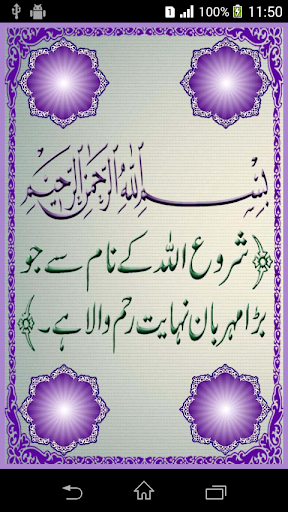 11:50
بِسْمِ اللّٰهِ الرَّحْمٰنِ الرَّحِيْمِ
﴿شروع اللہ کے نام سے جو
بڑا مہربان نہایت رحم والا ہے۔﴾